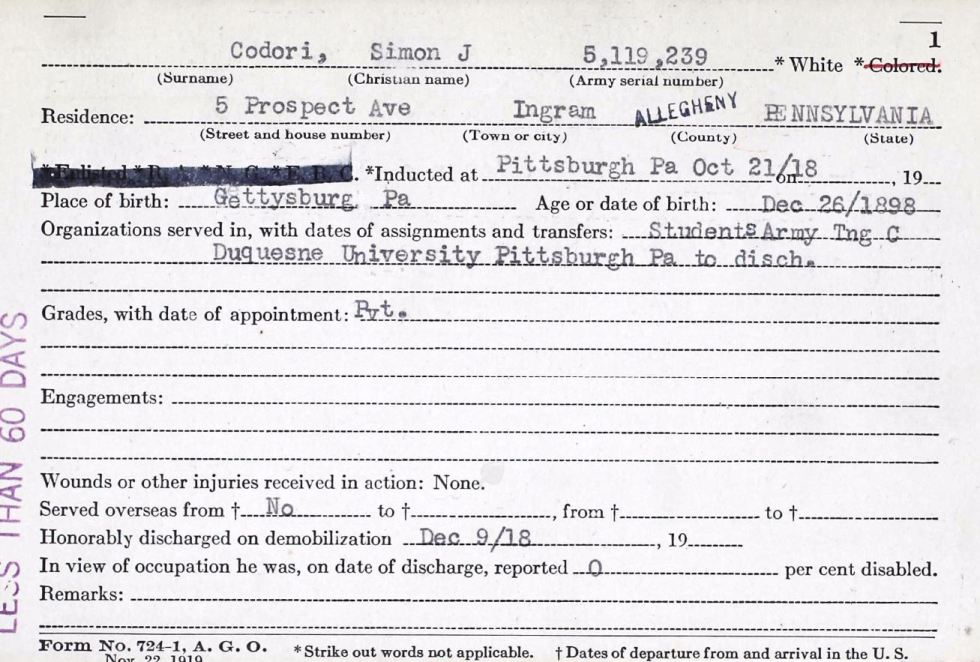 1
Codori, Simon J 5,119,239 * White * Colored.
(Surname) (Christian name) (Army serial number)
Residence: 5 Prospect Ave Ingram ALLEGHENY PENNSYLVANIA
(Street and house number) (Town or city) (County) (State)
*Enlisted * R. A. * N. G. * E. R. C. *Inducted at Pittsburgh Pa Oct 21/18 on , 19
Place of birth: Gettysburg Pa Age or date of birth: Dec 26/1898
Organizations served in, with dates of assignments and transfers: Students Army Tng C
Duquesne University Pittsburgh Pa to disch.
Grades, with date of appointment: Pvt.
Engagements:
Wounds or other injuries received in action: None.
Served overseas from † No to † , from † to †
Honorably discharged on demobilization Dec 9/18 , 19
In view of occupation he was, on date of discharge, reported 0 per cent disabled.
Remarks:
Form No. 724-1, A. G. O. * Strike out words not applicable. † Dates of departure from and arrival in the U. S.
Nov. 22, 1919
LESS THAN 60 DAYS